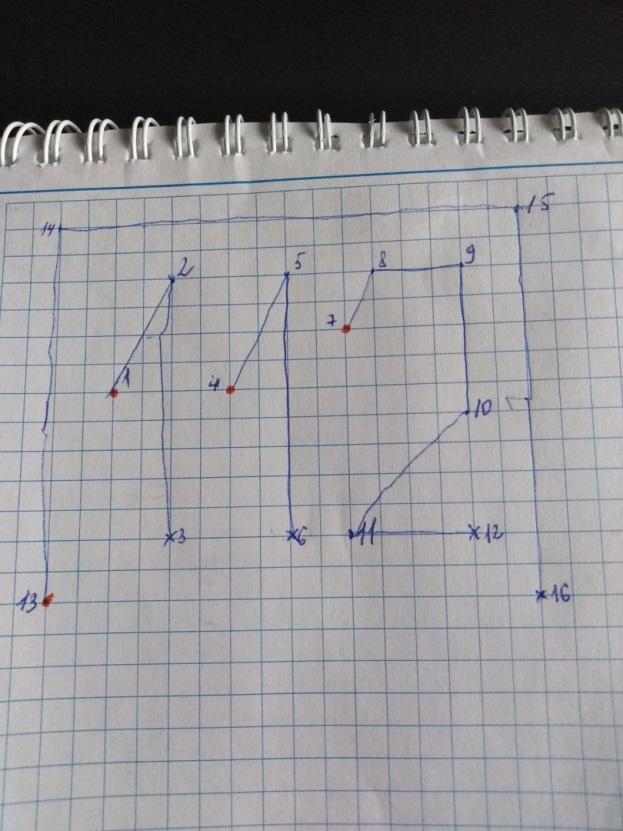 14 15
2 5 8 9
7
1 4
10
3 6 11 12
13 16